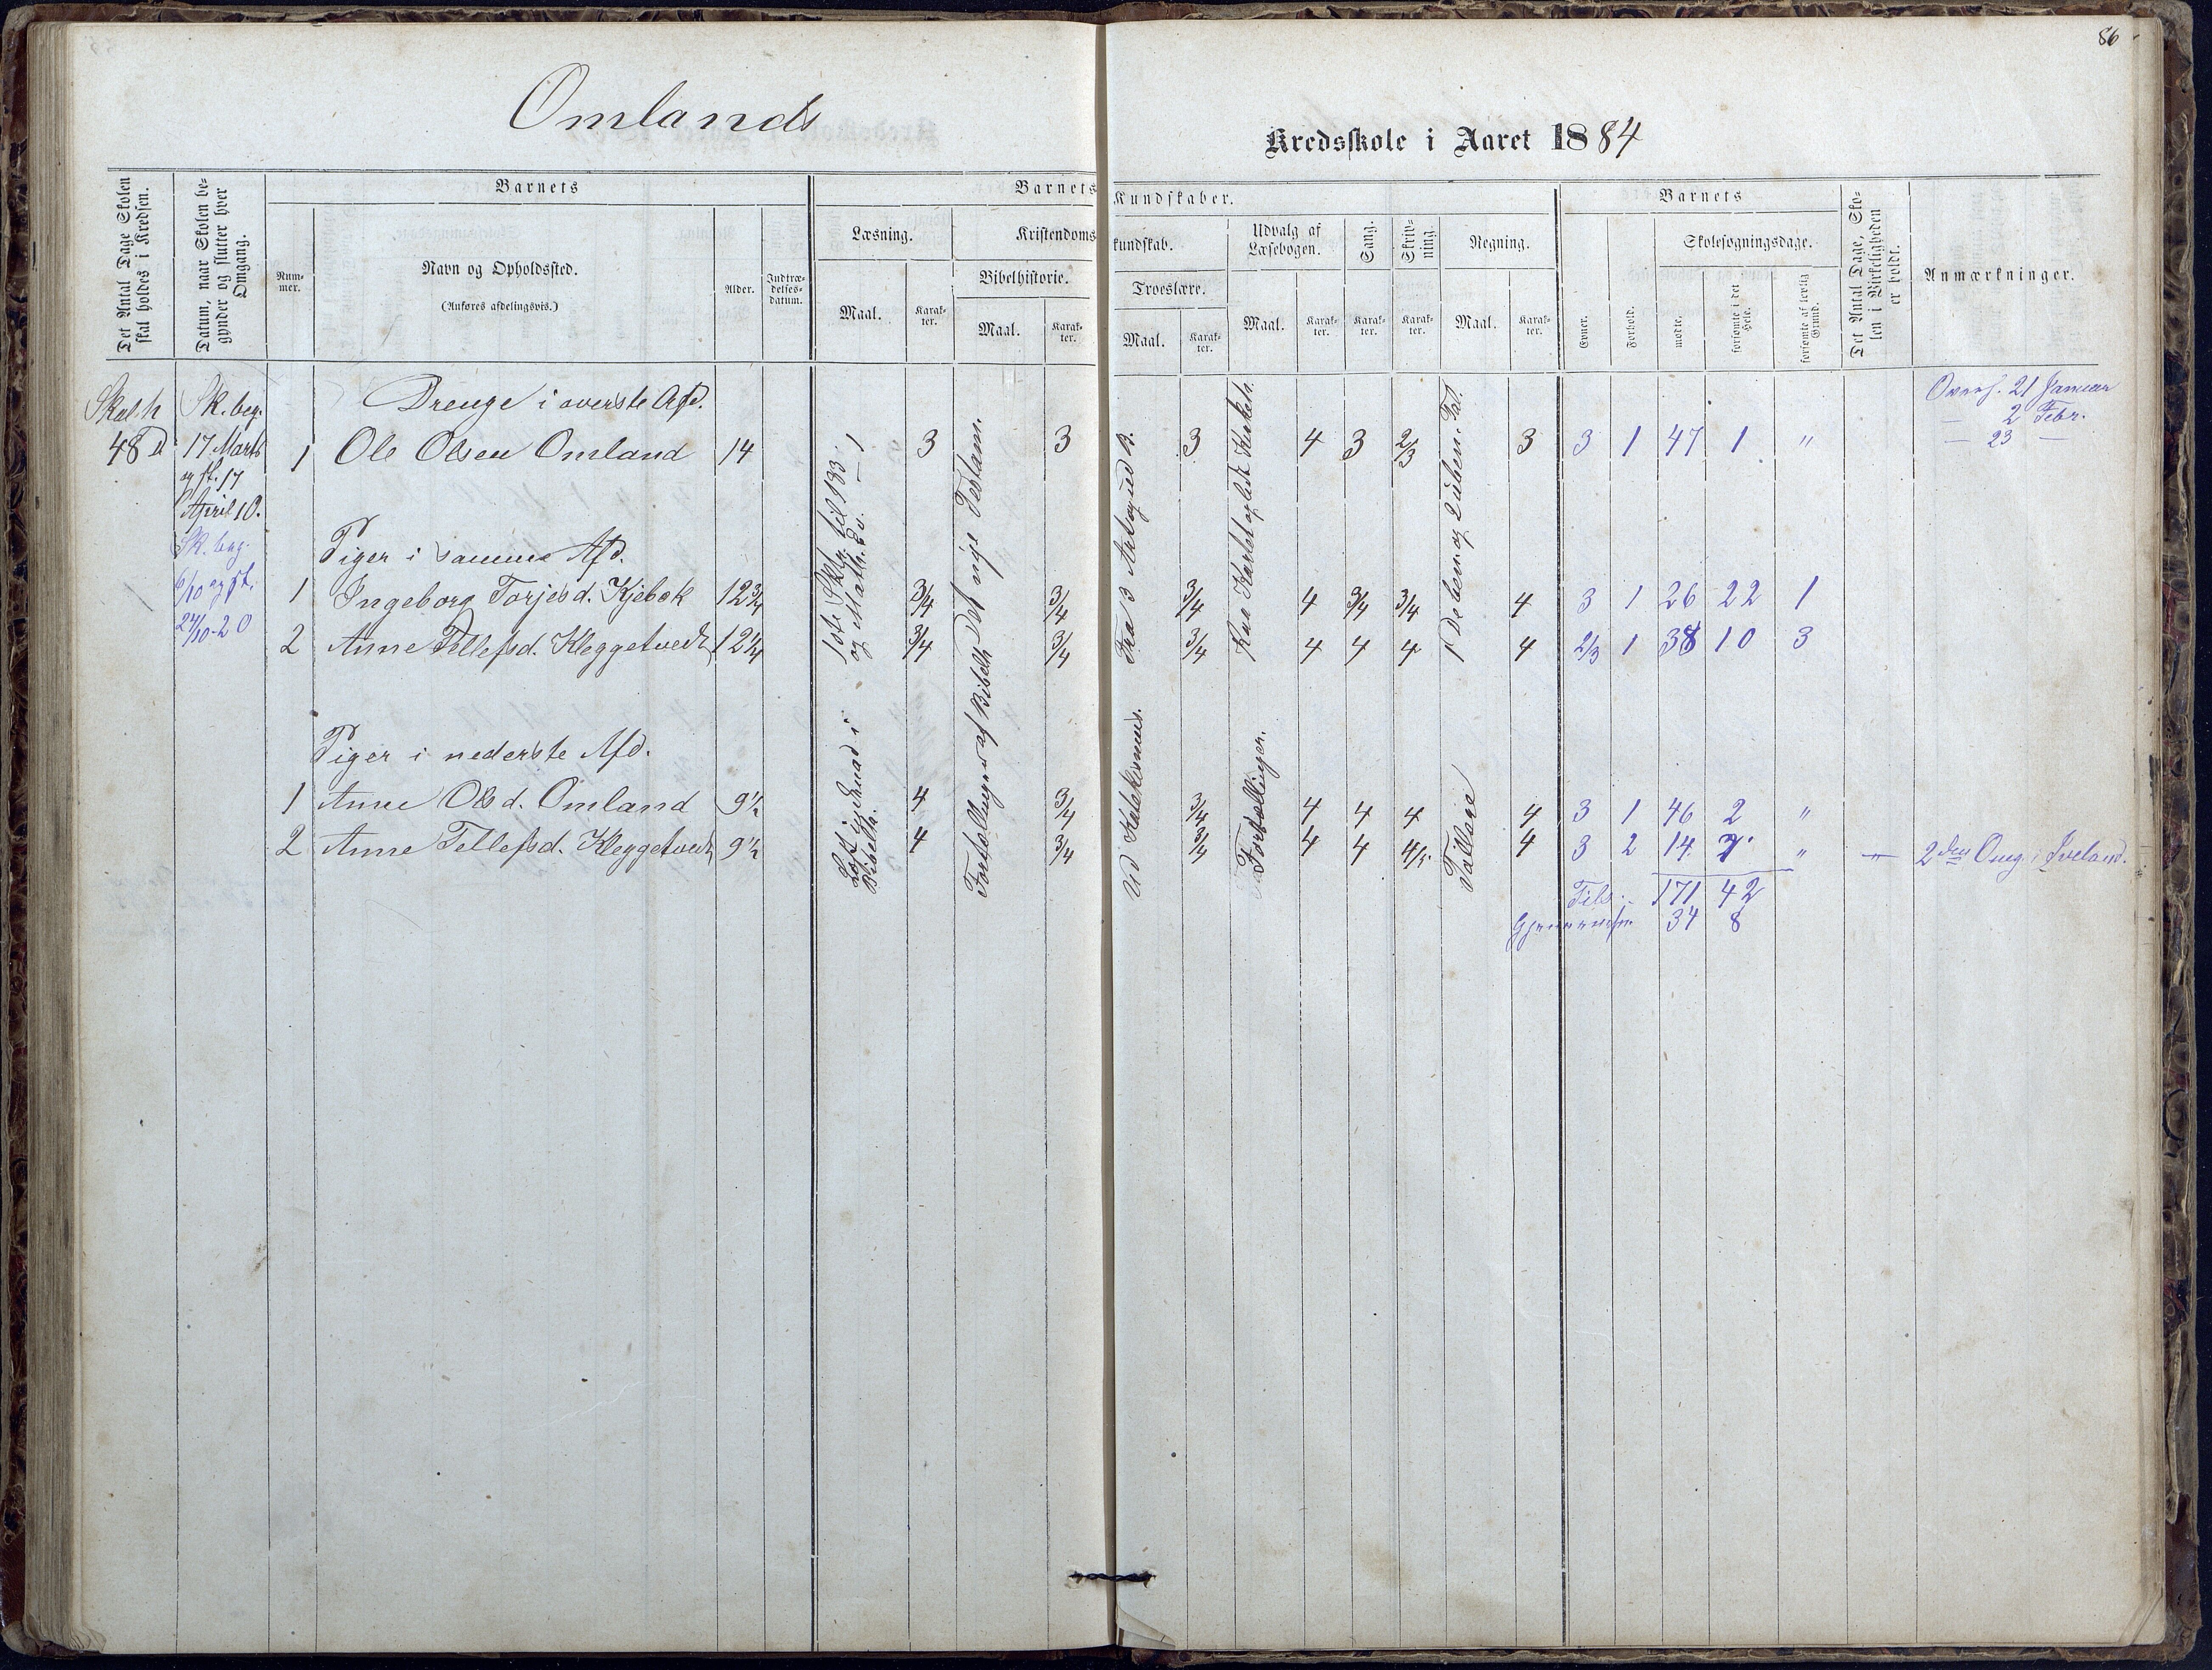 86
Omlands
Kredsskole i Aaret 1884
Det Antal Dage Skolen skal holdes i Kredsen.
Datum, naar Skolen begynder og slutter hver Omgang.
Barnets
Nummer.
Navn og Opholdssted.
(Anføres afdelingsvis.)
Alder.
Indtrædelsesdatum.
Barnets Kundskaber.
Læsning.
Maal.
Karakter.
Kristendomskundskab.
Bibelhistorie.
Maal.
Karakter.
Troeslære.
Maal.
Karakter.
Udvalg af Læsebogen.
Maal.
Karakter.
Sang.
Karakter.
Skrivning.
Karakter.
Regning.
Maal.
Karakter.
Barnets
Evner.
Forhold.
Skolesøgningsdage.
mødte.
forsømte i det Hele.
forsømte af lovlig Grund.
Det Antal Dage, Skolen i Virkeligheden er holdt.
Anmærkninger.
Skal h
48 D
Sk. beg.
17 Marts
og sl. 17
April 10.
Sk. beg.
6/10 og sl.
24/10 - 20
Drenge i øverste Afd.
1 Ole Olsen Omland 14 3 3 3 4 3 2/3 3 3 1 47 1 "
Piger i samme Afd.
1 Ingeborg Torjesd. Kjebek 12 3/4 3/4 3/4 3/4 4 3/4 3/4 4 3 1 26 22 1
2 Anne Tellefsd. Kleggetvedt 12 1/4 3/4 3/4 3/4 4 4 4 4 2/3 1 38 10 3
Piger i nederste Afd.
1 Anne Olsd. Omland 9 1/2 4 3/4 3/4 4 4 4 4 3 1 46 2 "
2 Anne Tellefsd. Kleggetvedt 9 1/2 4 3/4 3/4 4 4 4/5 4 3 2 14 7 " 2den Omg. i Iveland.
Tils. 171 42
34 8
og Math. Ev.
Det nye Testam.
Fortællinger af Bibelh
Læst i
Fra 3 Art. og ud B.
Ud Katekismus.
Fortællinger.
Tallære
21 Januar
— 2 Febr.
— 23 —